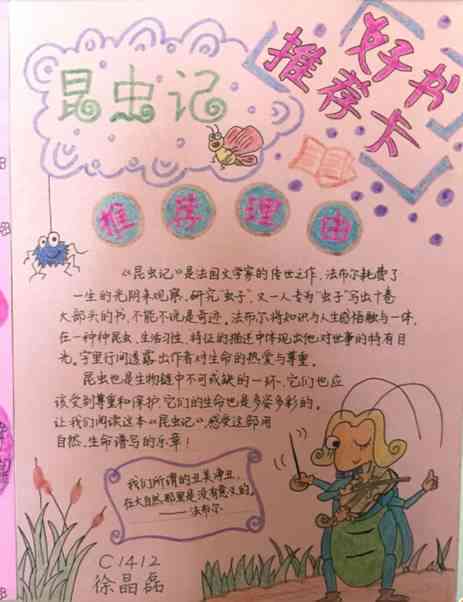 昆虫记
好书
推荐卡
推荐理由
《昆虫记》是法国文学家的传世之作，法布尔耗费了
一生的光阴来观察、研究“虫子”，又一人专为“虫子”写出十卷
大部头的书，不能不说是奇迹。法布尔将知识与人生感悟融于一体，
在一种种昆虫、生活习性、特征的描述中体现出他对世事的特有目
光。字里行间透露出作者对生命的热爱与尊重。
昆虫也是生物链中不可或缺的一环、它们也应
该受到尊重和保护，它们的生命也是多姿多彩的。
让我们阅读这本《昆虫记》，感受这部用
自然、生命谱写的乐章！
我们所谓的丑美净丑，
在大自然那里是没有意义的。
——法布尔
C1412
徐晶磊